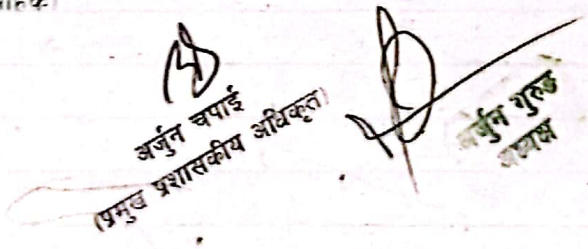 अर्जुन चपाई
(प्रमुख प्रशासकीय अधिकृत)
अर्जुन गुरुङ
अध्यक्ष